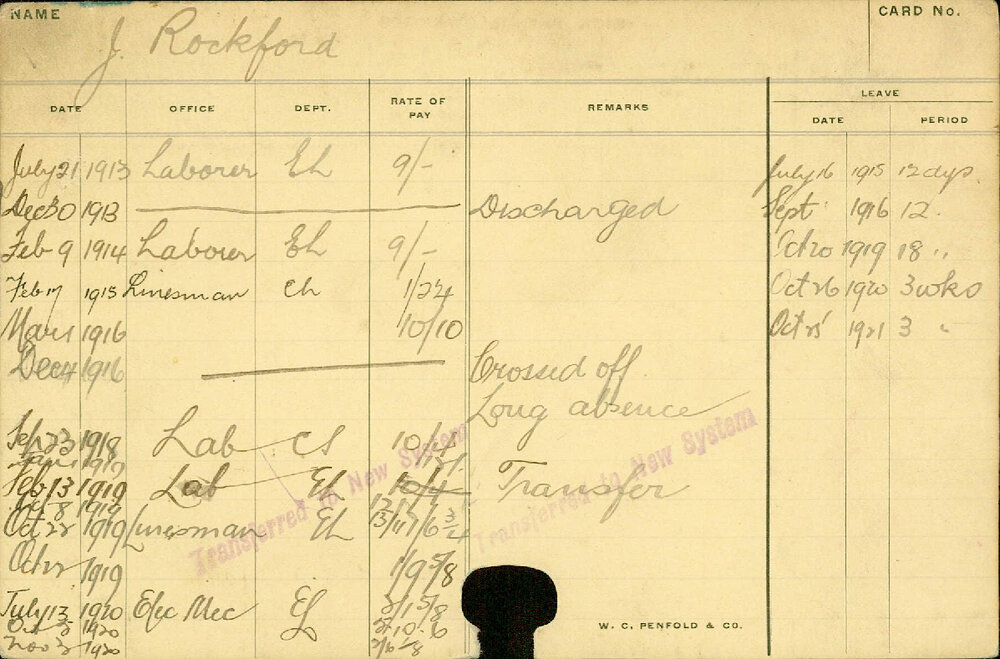 NAME
CARD No.
J. Rockford
DATE OFFICE DEPT. RATE OF PAY REMARKS LEAVE
DATE PERIOD
July 21 1913 Laborer El 9/- July 16 1915 12 dys.
Dec 30 1913 Discharged Sept 1916 12.
Feb 9 1914 Laborer El 9/- Oct 20 1919 18 "
Feb 17 1915 Linesman 1/2 Oct 26 1920 3 wks
1916 10/10 Oct 25 1921 3 "
Dec 4 1916 Crossed off
Long absence
Sep 23 1918 Lab 10/4
1919
Feb 13 1919 Lab El 10/4 Transfer
8 1919
Oct 22 1919 Linesman El
Transferred to New System
Transferred to New System
Oct 1919 1/9 5/8
July 13 1920 Elec Mec El 2/1 5/8
Oct 1920 2/10
Nov 1920
W. C. PENFOLD & CO.